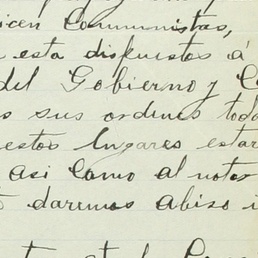 icen Communistas,
esta dispuestos á
del Gobierno y C
s sus ordenes toda
estos lugares estar
asi como al notar
daremos abiso i